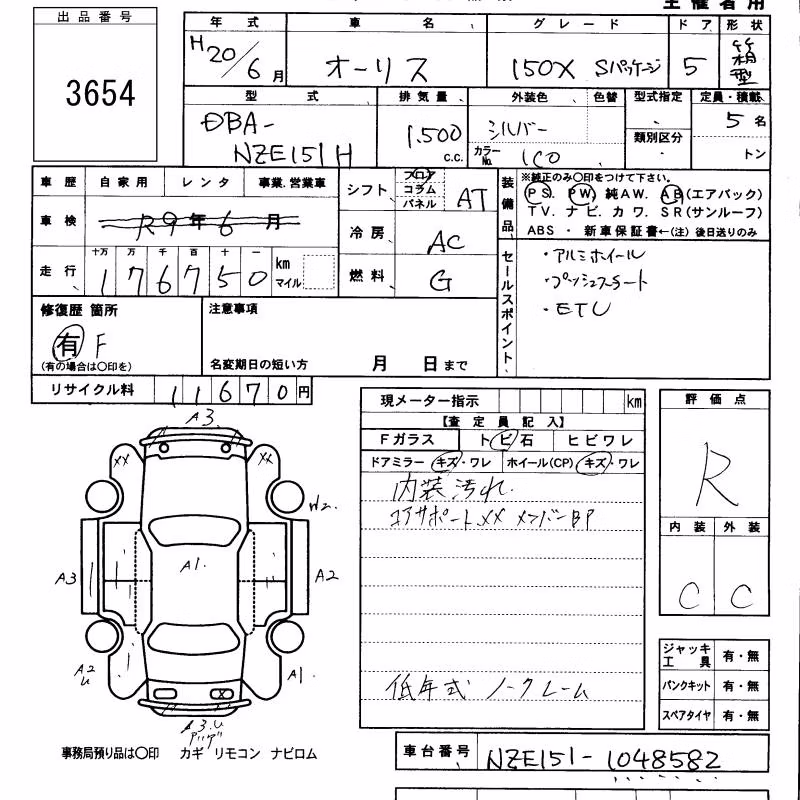 主催者用
出品番号
3654
年式 車名 グレード ドア 形状
H20/6月 オーリス 150X Sパッケージ 5 箱型
型式 排気量 外装色 色替 型式指定 定員・積載
DBA-
NZE151H
1,500 c.c.
シルバー
カラーNo. 1C0
類別区分
5名
トン
車歴 自家用 レンタ 事業.営業車
車検 R9年6月
走行 十万 万 千 百 十 一
176750 km マイル
シフト フロア コラム パネル AT
冷房 AC
燃料 G
装備品
※純正のみ〇印をつけて下さい。
PS. PW. 純AW. AB(エアバック)
TV. ナビ. カワ. SR(サンルーフ)
ABS ・ 新車保証書←(注) 後日送りのみ
セールスポイント
・アルミホイール
・プッシュスタート
・ETC
修復歴 箇所
有 F
(有の場合は〇印を)
注意事項
名変期日の短い方 月 日まで
リサイクル料 11670円
現メーター指示 km
【査定員記入】
Fガラス トビ石 ヒビワレ
ドアミラー キズ・ワレ ホイール(CP) キズ・ワレ
内装汚れ.
コアサポートXX メンバーBP
低年式 ノークレーム
評価点
R
内装 外装
C C
ジャッキ工具 有・無
パンクキット 有・無
スペアタイヤ 有・無
A3.
XX XX
W2.
A1.
A3 A2
A2
U
A1.
A3.U
事務局預り品は〇印 カギ リモコン ナビロム
車台番号 NZE151-1048582